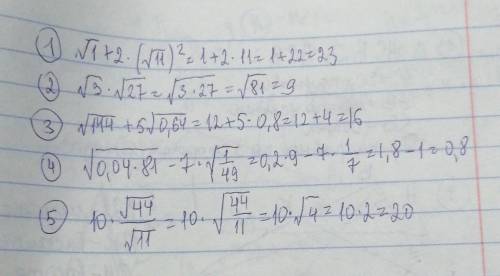 ① √1+2·(√11)²=1+2·11=1+22=23
② √3·√27=√3·27=√81=9
③ √144+5√0,64=12+5·0,8=12+4=16
④ √0,04·81-7·√1/49=0,2·9-7·1/7=1,8-1=0,8
⑤ 10·√44/√11=10·√44/11=10·√4=10·2=20